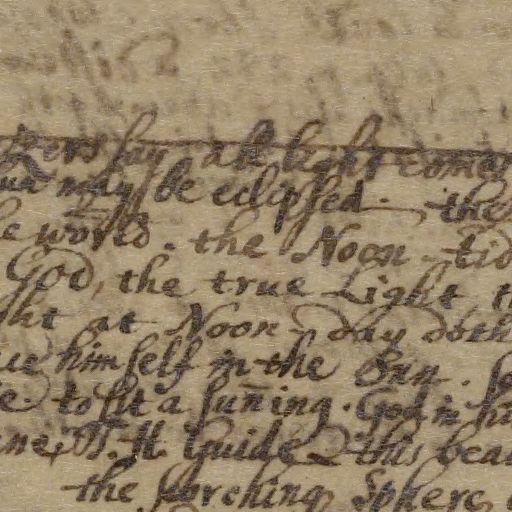 say all light comes
may be eclipsed. the
world. the Noon-tid
God, the true Light th
ght at Noon-day doth
himself in the Sun. so
to sit a suning. God in hi
B. H. Guide this bea
the scorching Sphere